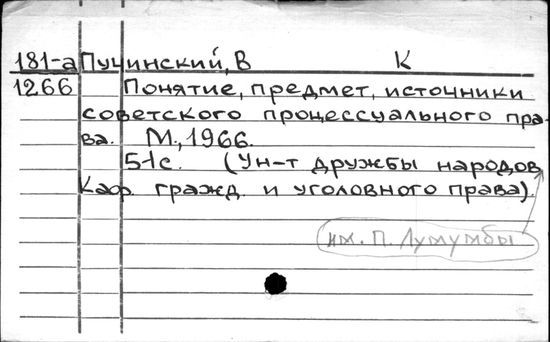 181-а Пучинский, В К
1266 Понятие, предмет, источники
советского процессуального пра-
ва. М., 1966.
51с. (Ун-т дружбы народов
Каф. гражд. и уголовного права).
им. П. Лумумбы